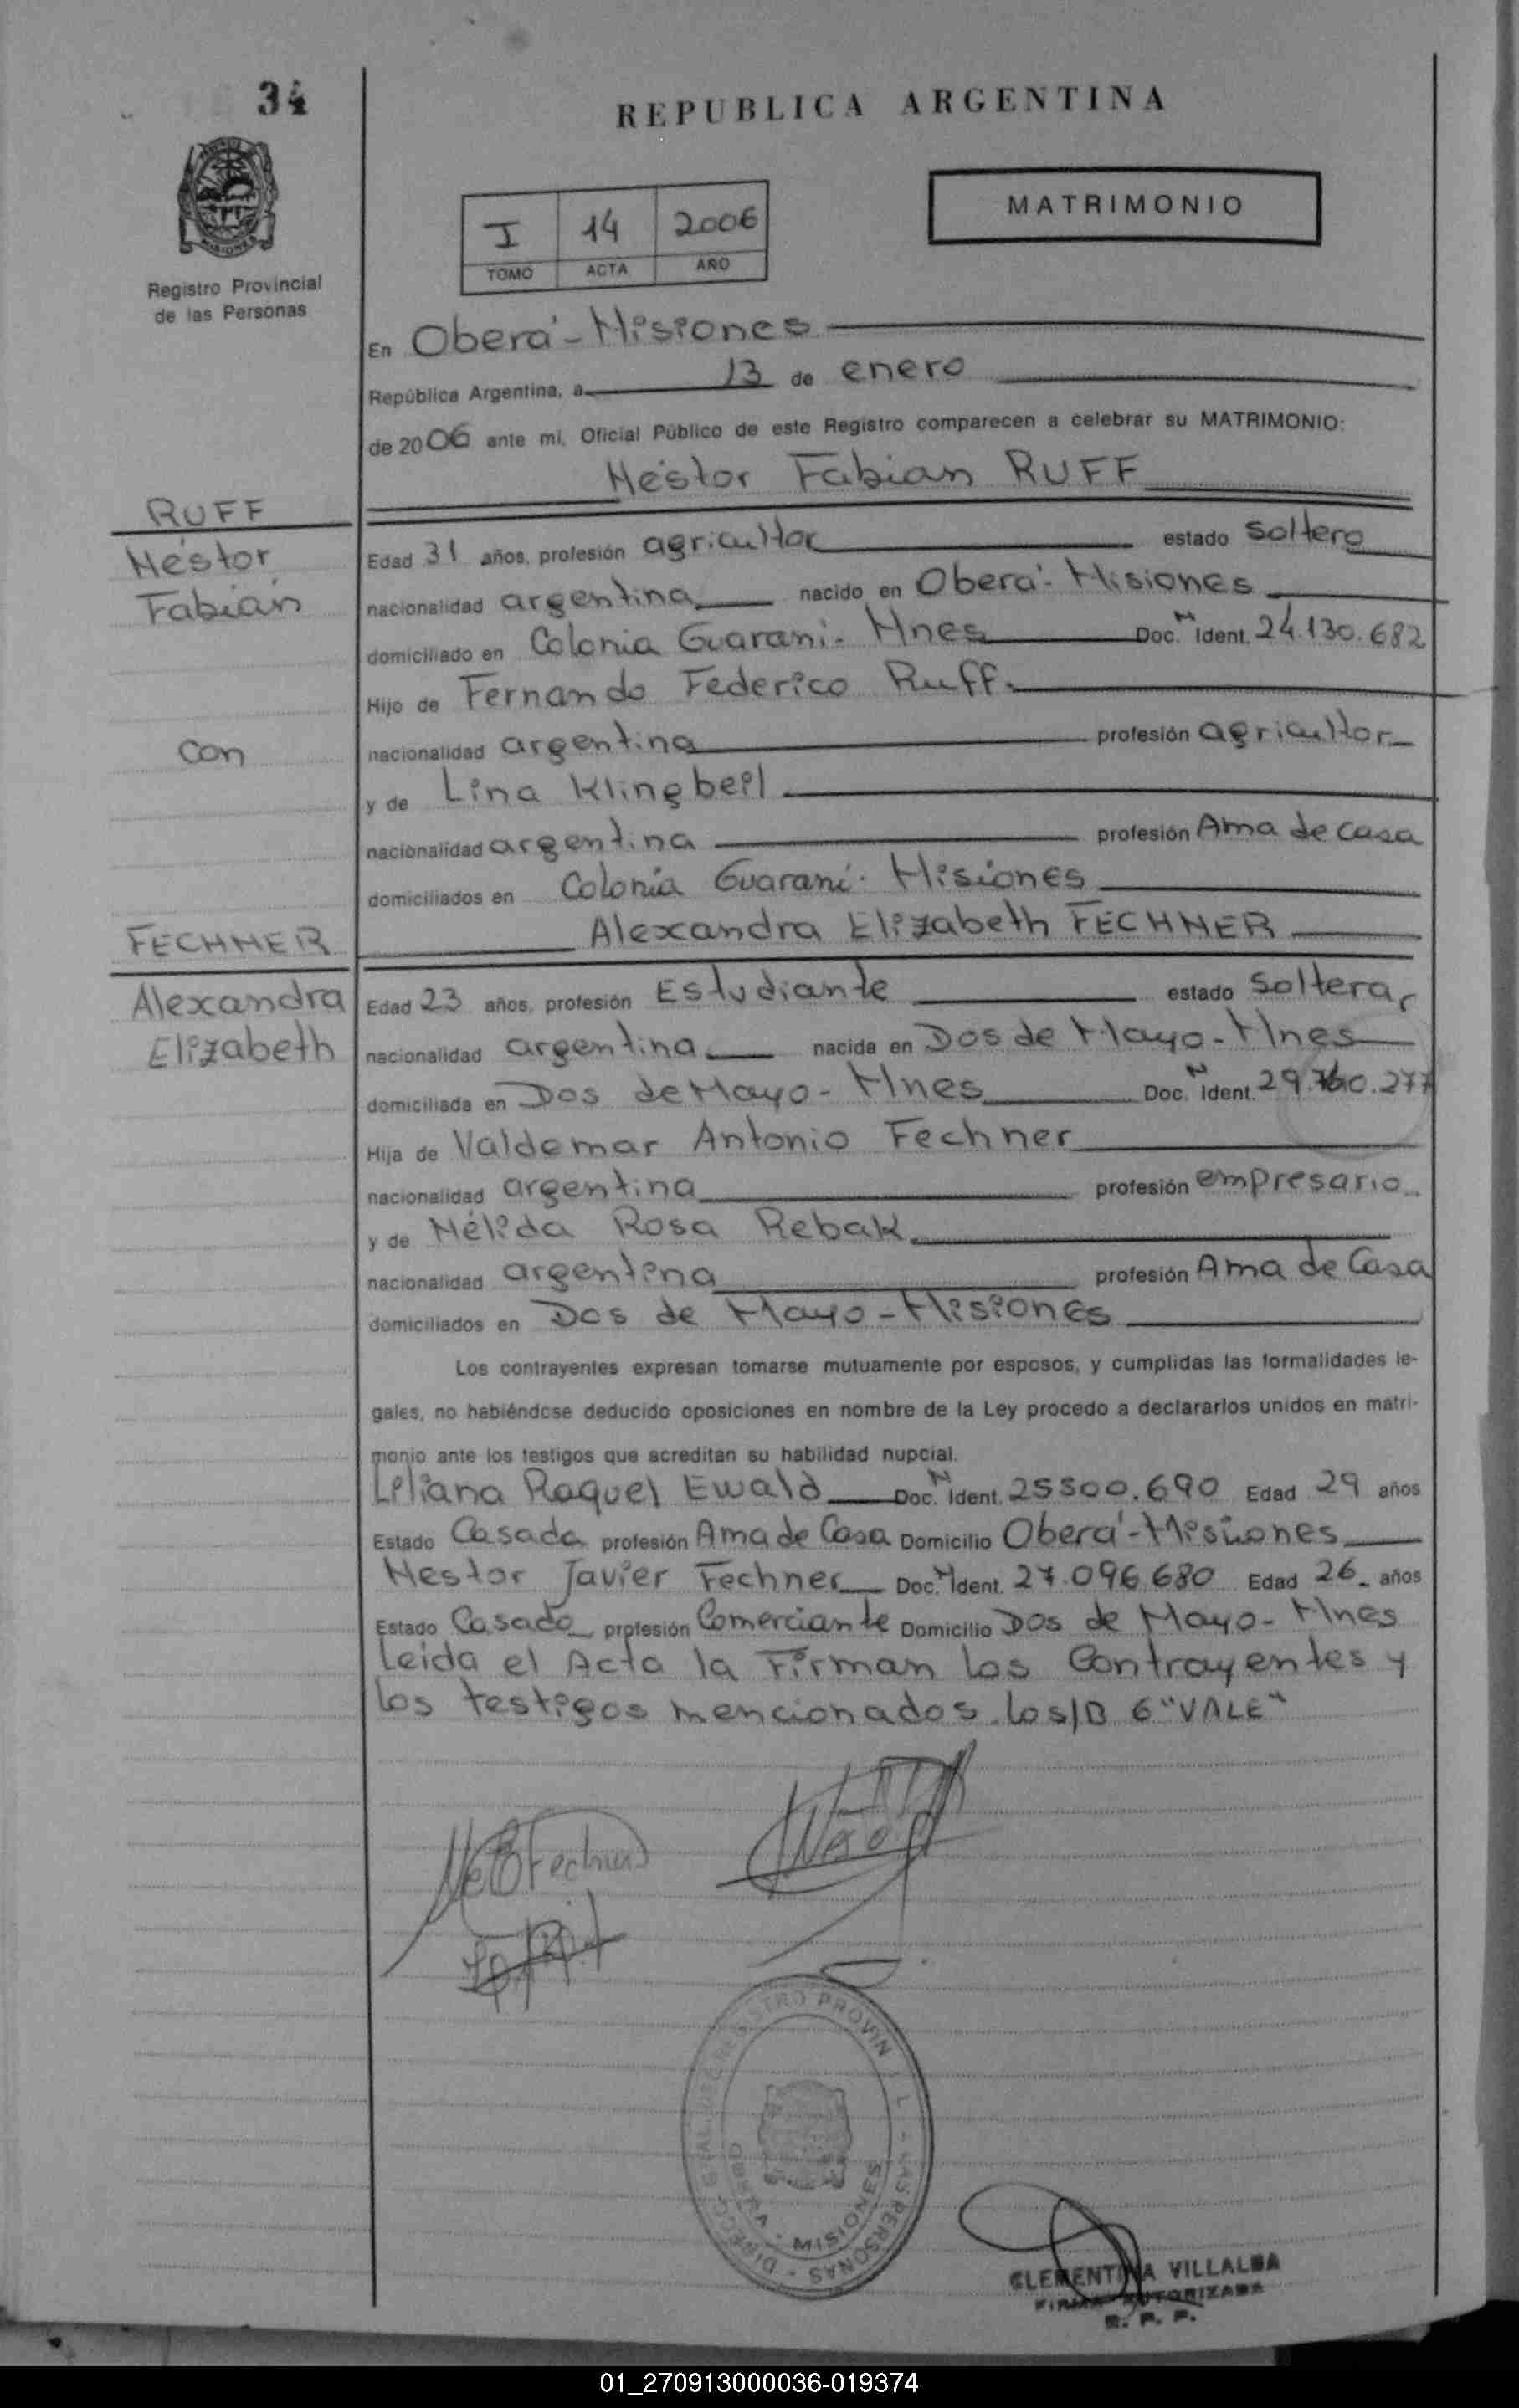 34
REPUBLICA ARGENTINA
MATRIMONIO
I 14 2006
TOMO ACTA AÑO
Registro Provincial
de las Personas
En Oberá - Misiones
República Argentina, a 13 de enero
de 2006 ante mi, Oficial Público de este Registro comparecen a celebrar su MATRIMONIO:
Néstor Fabian RUFF
RUFF
Néstor
Fabián
con
FECHNER
Alexandra
Elizabeth
Edad 31 años, profesión agricultor estado Soltero
nacionalidad argentina nacido en Oberá - Misiones
domiciliado en Colonia Guaraní - Mnes Doc. N Ident. 24.130.682
Hijo de Fernando Federico Ruff.
nacionalidad argentina profesión agricultor
y de Lina Klingbeil
nacionalidad argentina profesión Ama de casa
domiciliados en Colonia Guaraní - Misiones
Alexandra Elizabeth FECHNER
Edad 23 años, profesión Estudiante estado Soltera
nacionalidad argentina nacida en Dos de Mayo - Mnes
domiciliada en Dos de Mayo - Mnes Doc. N Ident.
Hija de Valdemar Antonio Fechner
nacionalidad argentina profesión empresario
y de Nélida Rosa Rebak
nacionalidad argentina profesión Ama de Casa
domiciliados en Dos de Mayo - Misiones
Los contrayentes expresan tomarse mutuamente por esposos, y cumplidas las formalidades le-
gales, no habiéndose deducido oposiciones en nombre de la Ley procedo a declararlos unidos en matri-
monio ante los testigos que acreditan su habilidad nupcial.
Liliana Raquel Ewald Doc. N Ident. 25500.690 Edad 29 años
Estado Casada profesión Ama de Casa Domicilio Oberá - Misiones
Nestor Javier Fechner Doc. N Ident. 27.096.680 Edad 26 años
Estado Casado profesión Comerciante Domicilio Dos de Mayo - Mnes
Leída el Acta la Firman los Contrayentes y
los testigos mencionados. Lo s/B 6 "VALE"
Fechner
OBERA - MISIONES
CLEMENTINA VILLALBA
FIRMA AUTORIZADA
R. P. P.
01_270913000036-019374